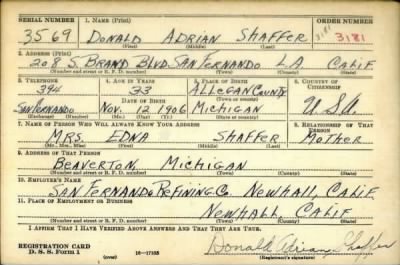 SERIAL NUMBER 1. NAME (Print) ORDER NUMBER
3569 DONALD ADRIAN SHAFFER 3181 3181
(First) (Middle) (Last)
2. ADDRESS (Print)
208 S. BRAND BLVD. SAN FERNANDO L.A. CALIF.
(Number and street or R. F. D. number) (Town) (County) (State)
3. TELEPHONE 4. AGE IN YEARS 5. PLACE OF BIRTH 6. COUNTRY OF CITIZENSHIP
394 33 ALLEGAN COUNTY
DATE OF BIRTH (Town or county)
SAN FERNANDO NOV. 12 1906 MICHIGAN U.S.A.
(Exchange) (Number) (Mo.) (Day) (Yr.) (State or country)
7. NAME OF PERSON WHO WILL ALWAYS KNOW YOUR ADDRESS 8. RELATIONSHIP OF THAT PERSON
MRS. EDNA SHAFFER MOTHER
(Mr., Mrs., Miss) (First) (Middle) (Last)
9. ADDRESS OF THAT PERSON
BEAVERTON, MICHIGAN
(Number and street or R. F. D. number) (Town) (County) (State)
10. EMPLOYER'S NAME
SAN FERNANDO REFINING CO. NEWHALL, CALIF.
11. PLACE OF EMPLOYMENT OR BUSINESS
NEWHALL, CALIF
(Number and street or R. F. D. number) (Town) (County) (State)
I AFFIRM THAT I HAVE VERIFIED ABOVE ANSWERS AND THAT THEY ARE TRUE.
REGISTRATION CARD Donald Adrian Shaffer
D. S. S. Form 1 (over) 16—17105 (Registrant's signature)